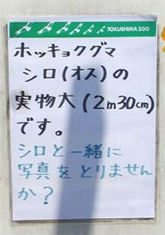 TOKUSHIMA ZOO
ホッキョクグマ
シロ(オス)の
実物大(2m30cm)
です。
シロと一緒に
写真をとりません
か?